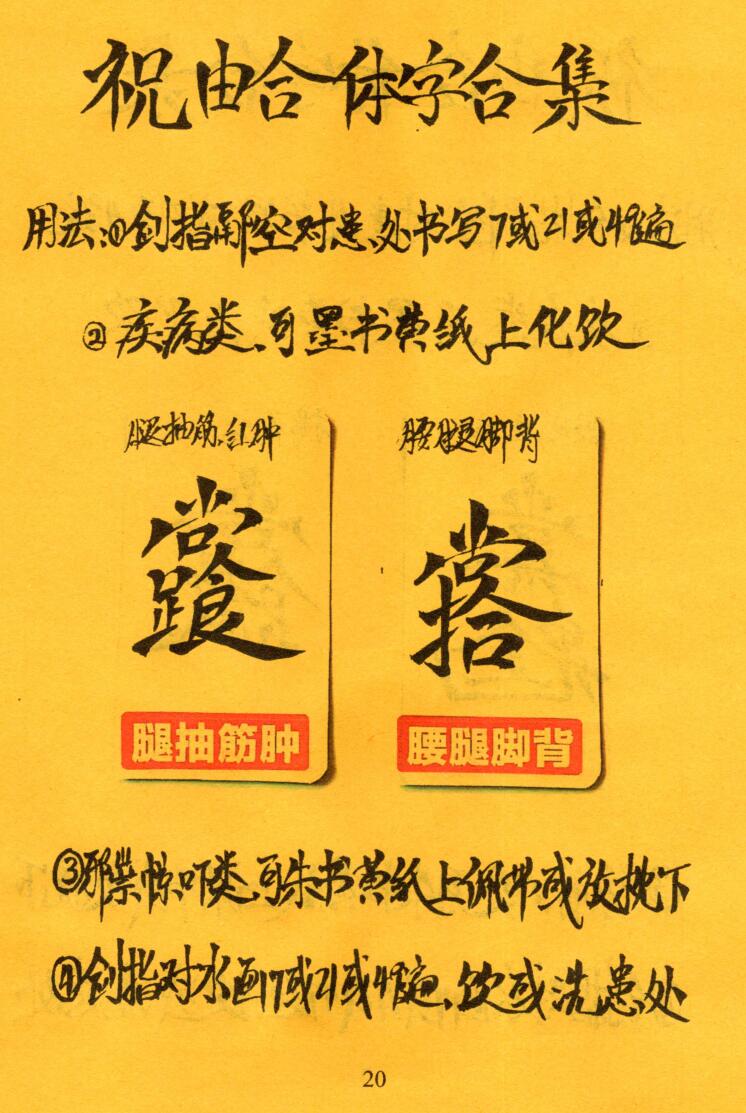 祝由合体字合集
用法:①剑指隔空对患处书写7或21或49遍
②疾病类、可墨书黄纸上化饮
腿抽筋、红肿
腰腿脚背
腿抽筋肿
腰腿脚背
③邪祟惊吓类、可朱书黄纸上佩带或放枕下
④剑指对水画7或21或49遍、饮或洗患处
20